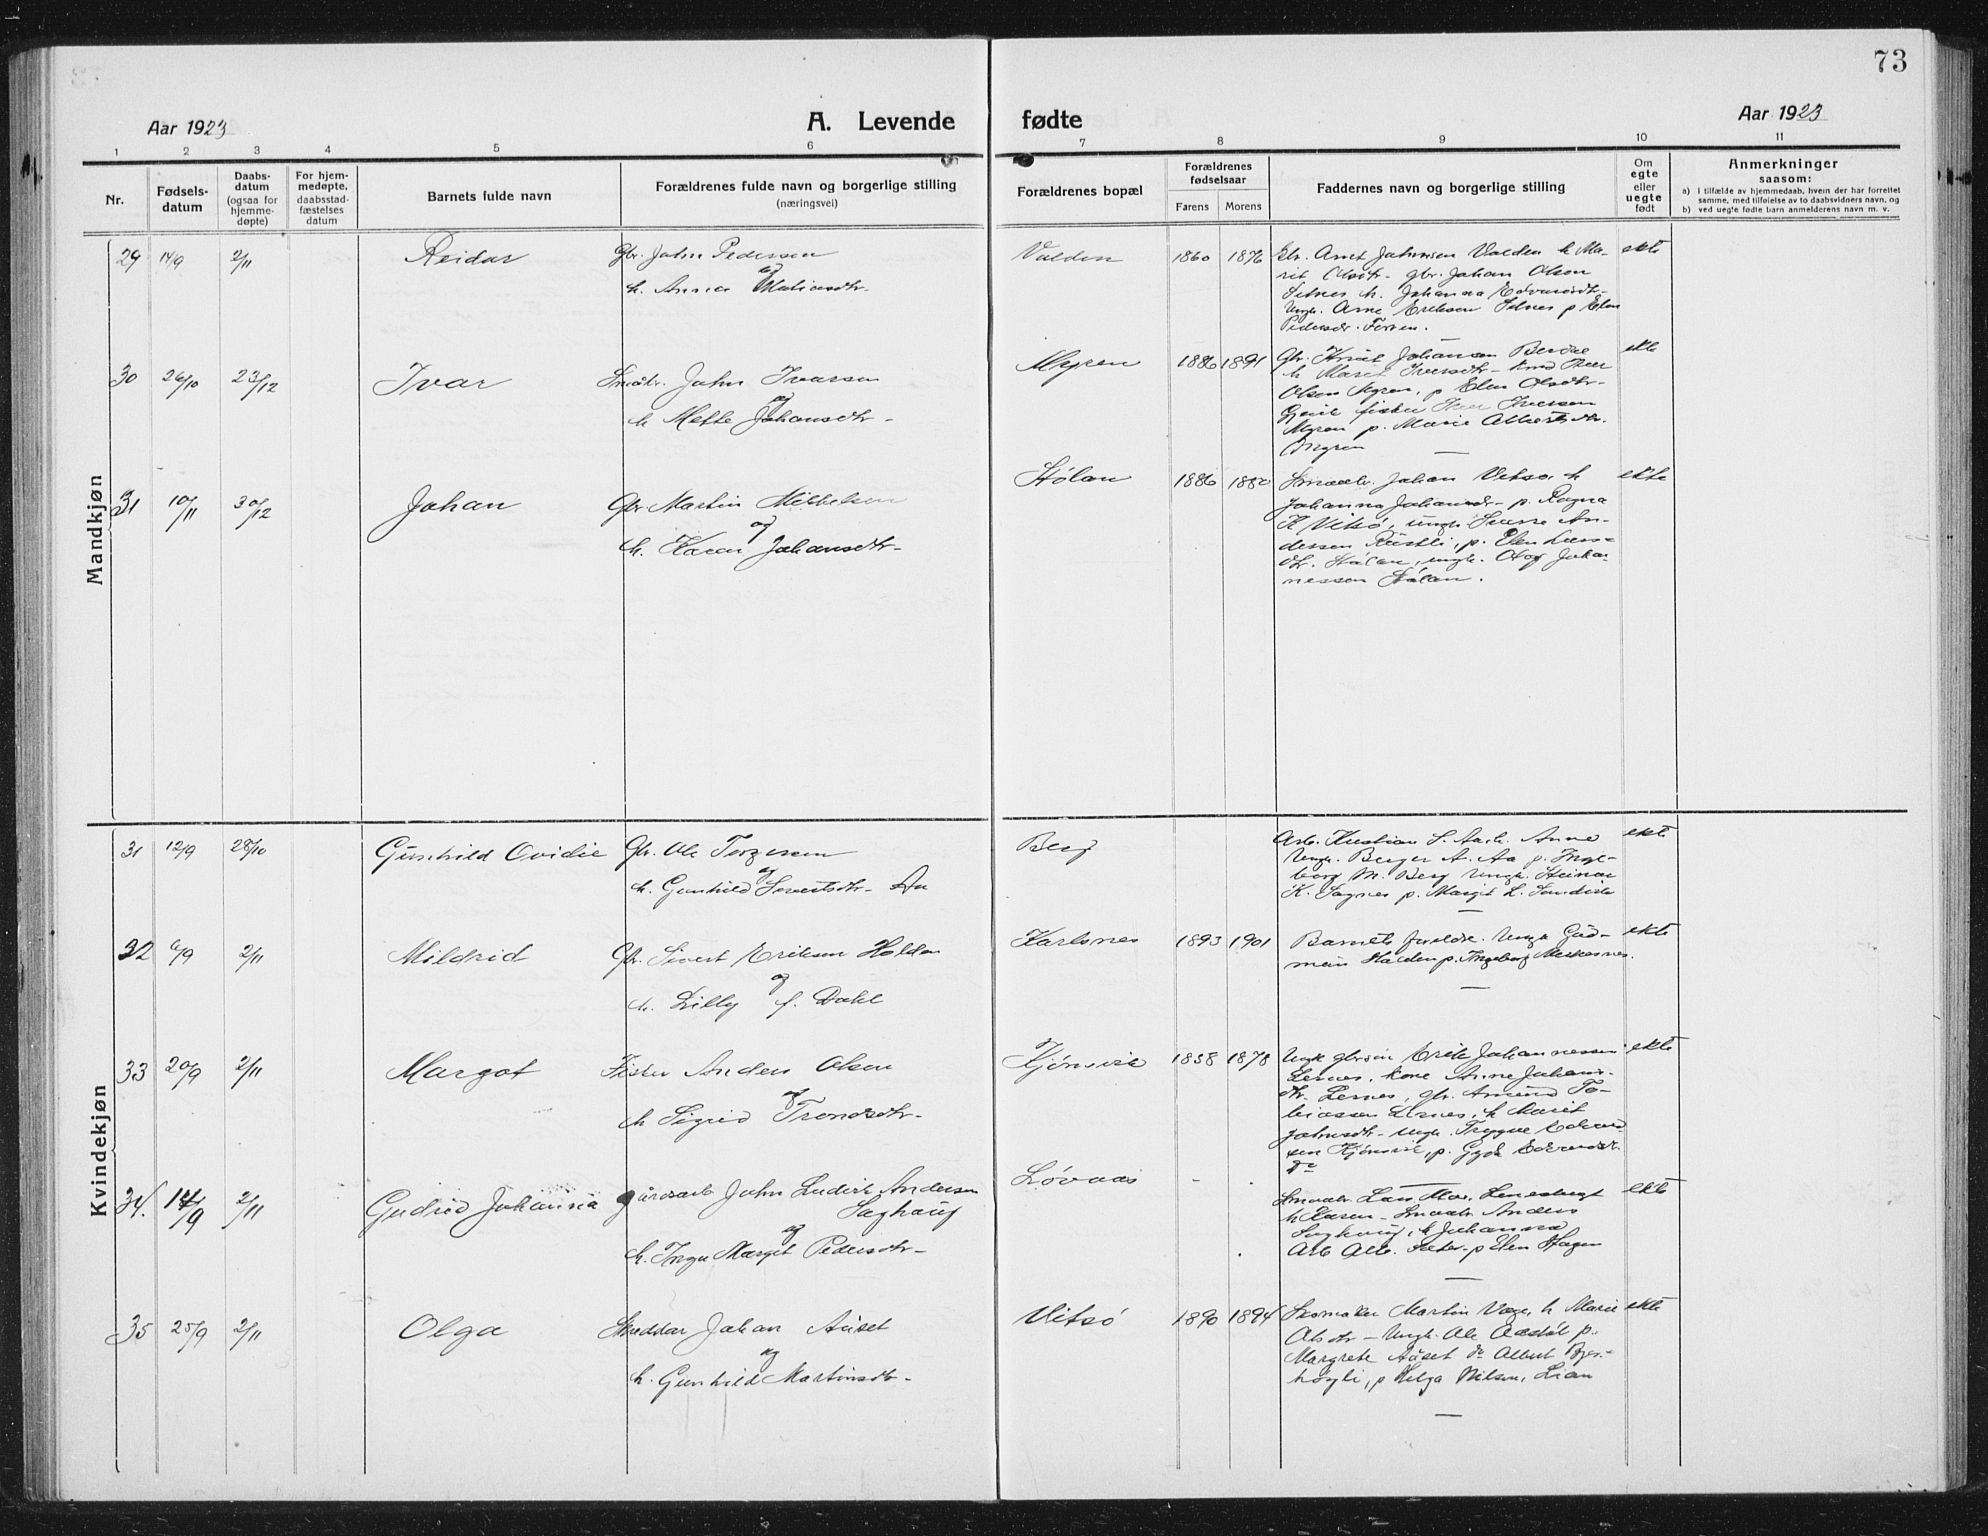 73
Aar 1923
A. Levende fødte
Aar 1923
1 2 3 4 5 6 7 8 9 10 11
Nr.
Fødsels-
datum
Daabs-
datum
(ogsaa for
hjemme-
døpte)
For hjem-
medøpte,
daabsstad-
fæstelses
datum
Barnets fulde navn
Forældrenes fulde navn og borgerlige stilling
(næringsvei)
Forældrenes bopæl
Forældrenes
fødselsaar
Farens Morens
Faddernes navn og borgerlige stilling
Om
egte
eller
uegte
født
Anmerkninger
saasom:
a) i tilfælde av hjemmedaab, hvem der har forrettet
samme, med tilføielse av to daabsvidners navn, og
b) ved uegte fødte barn anmelderens navn m. v.
Mandkjøn
29 14/9 2/11 Reidar Gbr. John Pedersen
og
h. Anna
Valden 1860 1876
Gbr. Arnt Johnsen Valden h Ma-
rit Olsdtr- gbr. Johan Olson
Selnes h. Johanna
Ungk. Arne Eriksen Selnes p Elen
Pedersdr.
ekte
30 26/10 23/12 Ivar Småbr. John Ivarsen
og
h Mette Johansdtr-
Myren 1886 1891
Gbr. Johansen
h Marit Iversdtr-
Olsen Myren, p Elen Olsdtr-
fisker Iver Iversen
Myren p. Marie
Myren
ekte
31 10/11 30/12 Johan Gbr. Martin Mikkelsen
og
h. Karen Johansdtr-
Hølan 1886 1882
Smaabr. Johan Vitsø h
Johanna p. Ragna
K Vitsø, ungk Sverre An-
dersen p. Elen Lars-
dtr. Hølan, ungk. Olav Joha-
nessen Hølan.
ekte
Kvindekjøn
31 12/9 28/10 Gunhild Ovidie Gbr. Ole Torgersen
og
h. Gunhild Sivertsdtr- Aa
Berg
Arb. Kristian S. Aa h. Anne
Ungk. Berger A. Aa p. Inge-
borg M. Berg Ungk. Steinar
K. Sagnes p. Margit L.
ekte
32 6/9 2/11 Mildrid Gbr. Sivert Eriksen Holden
og
h. Lilly f. Dahl
Karlsnes 1893 1901
Barnets foreldre. Ungk Gud-
mun Halden p. Ingeborg
ekte
33 20/9 2/11 Margot Fisker Anders Olsen
og
h Sigrid Trondsdtr-
Kjønsvik 1858 1878
Ungk gbrsøn Erik Johannessen
Lernes, kone Anne Johans-
dtr. Lernes, gbr. Amund To-
biassen Lernes, h Marit
Johnsdtr- ungk. Trygve
sen Kjønsvik, p. Gyda
do
ekte
34. 14/9 2/11 Gudrid Johanna gårdsarb John Ludvik Andersen
Saghaug
og
h. Inga Margit Pedersdtr-
Løvaas
Smaabr. Lars
h Karen - Smaabr. Anders
Saghaug, h Johanna
Arb Alb. Sæter- p Elen Hagen
ekte
35 25/9 2/11 Olga Skredder Johan Auset
og
h. Gunhild Martinsdtr-
Vitsø 1890 1894
Skomaker Martin h Marie
Olsdtr- Ungk. Ole p.
Margrete Auset do Albert
p Helga Nilsen, Lian
ekte